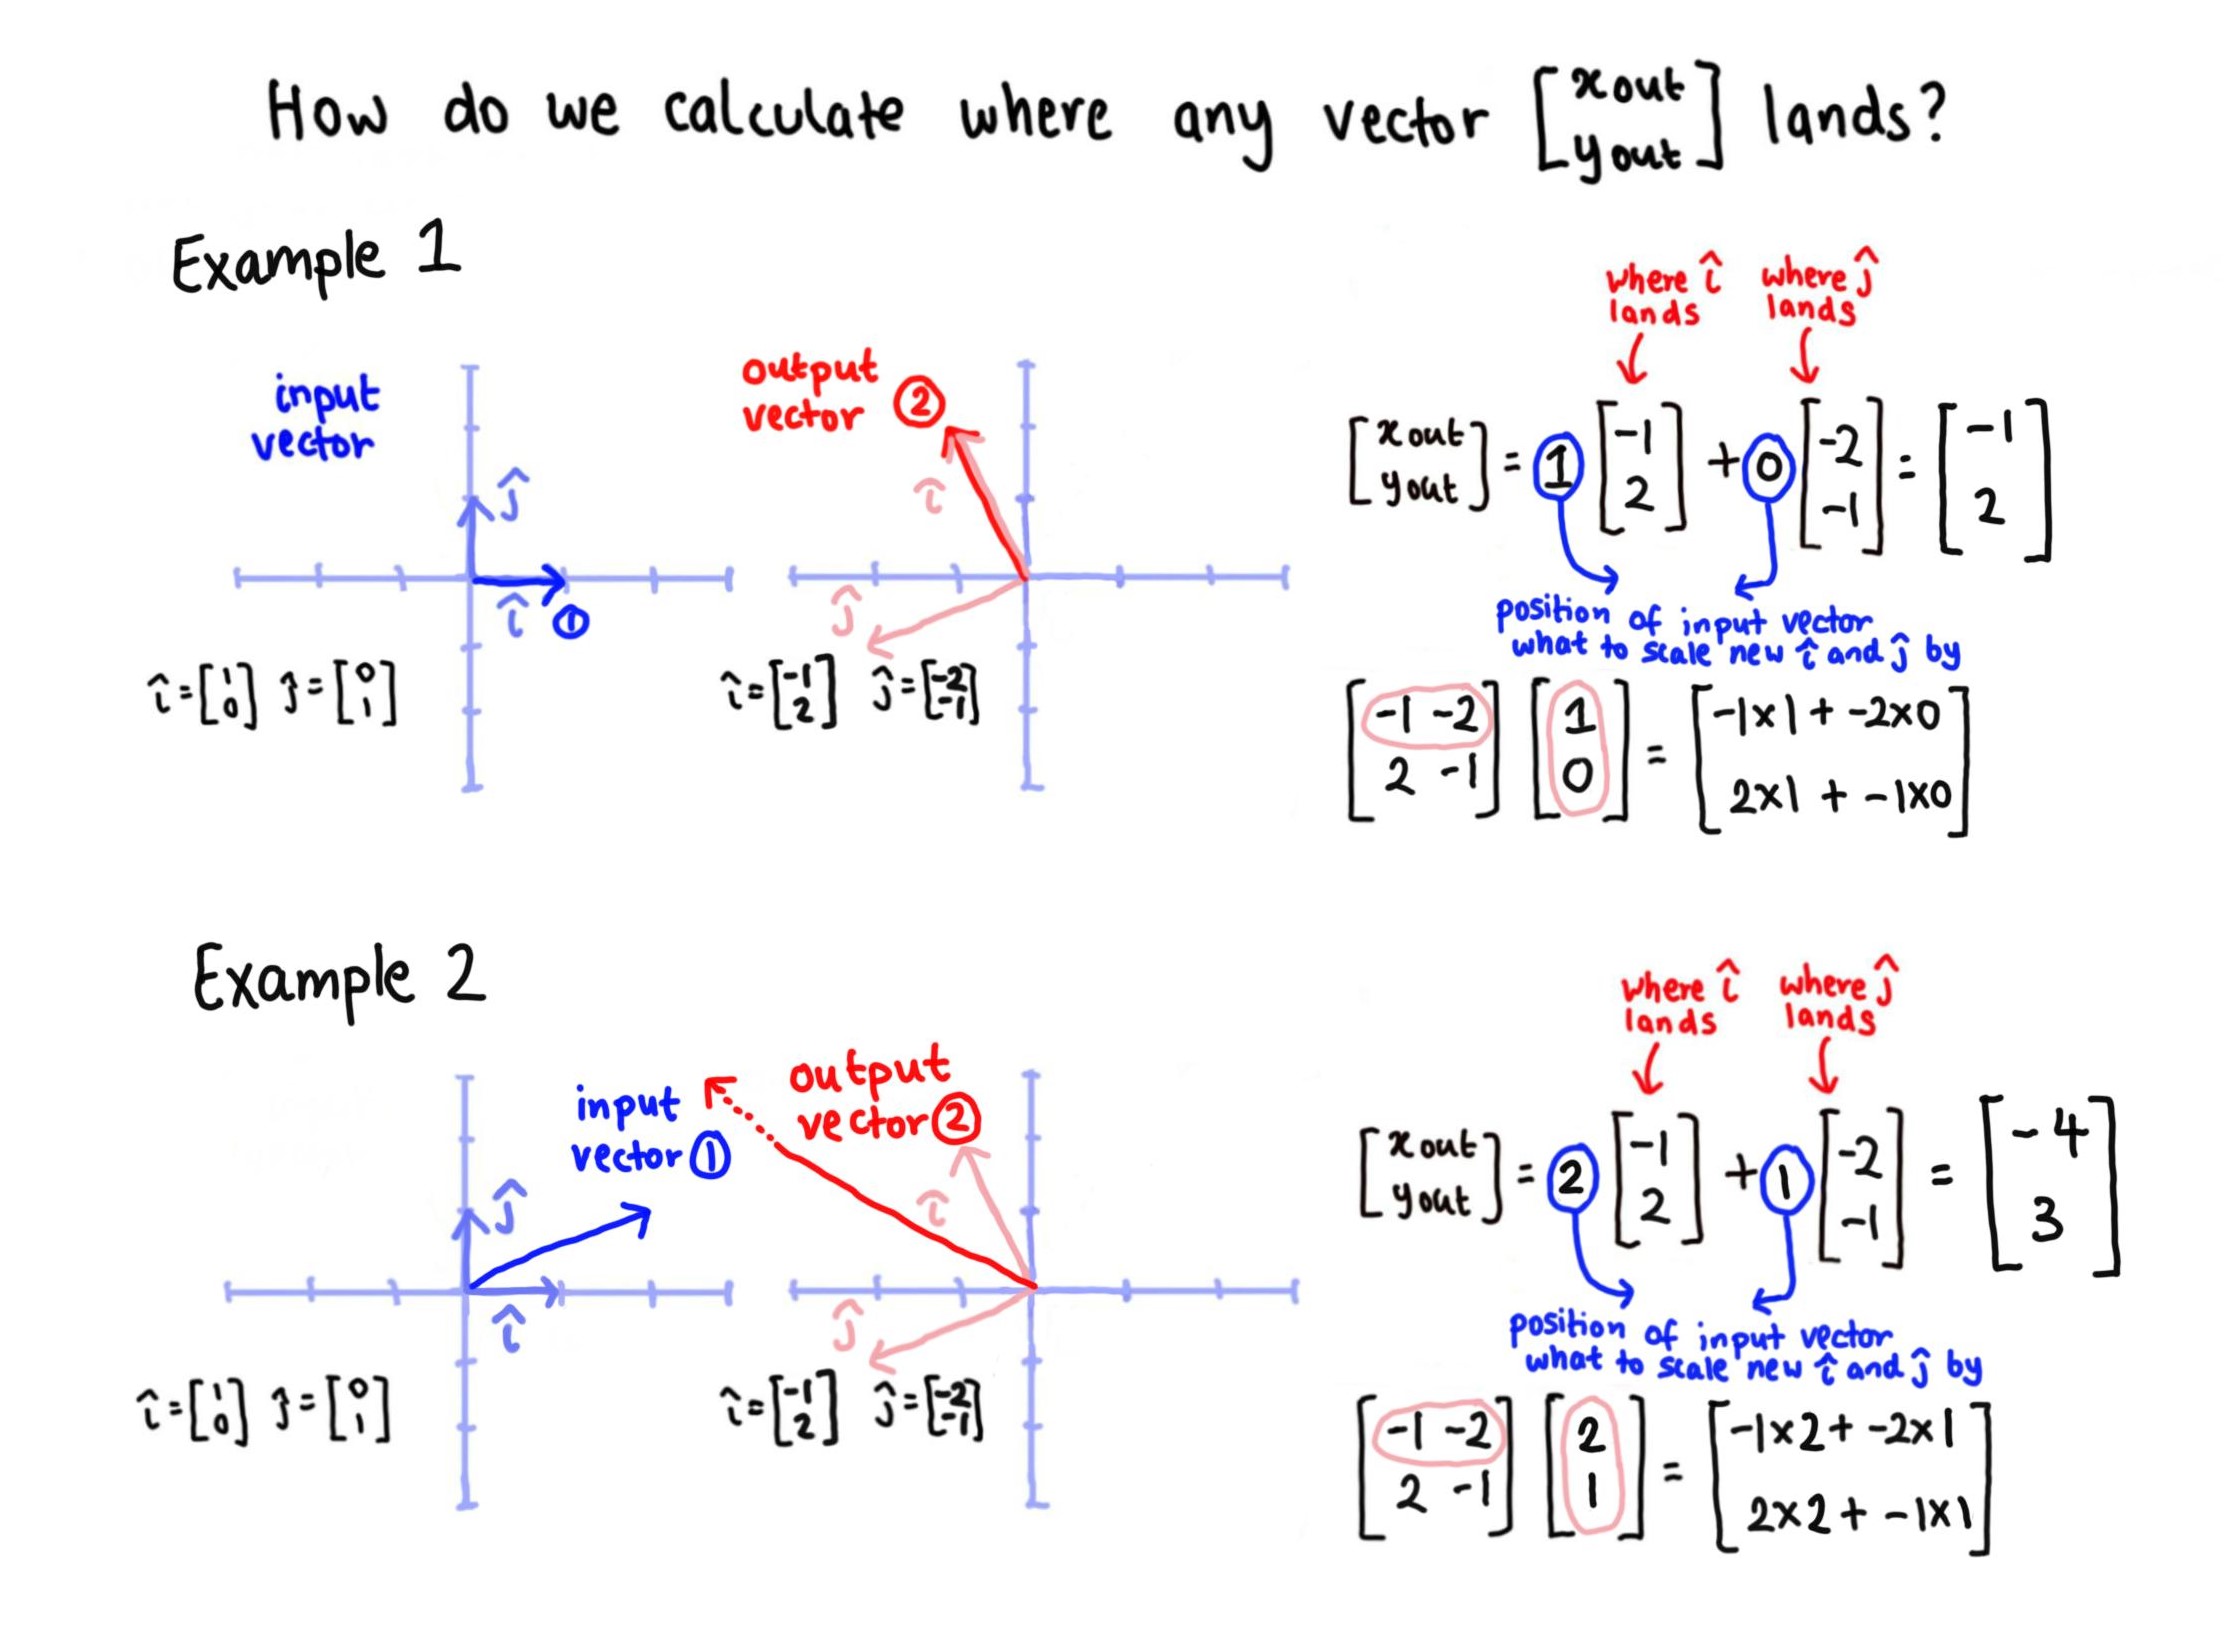 How do we calculate where any vector [xout yout] lands?
Example 1
input
vector
ĵ
î ①
î = [1 0] ĵ = [0 1]
output
vector ②
î
ĵ
î = [-1 2] ĵ = [-2 -1]
where î lands
where ĵ lands
[xout yout] = 1 [-1 2] + 0 [-2 -1] = [-1 2]
position of input vector
what to scale new î and ĵ by
[-1 -2
2 -1] [1 0] = [-1x1 + -2x0
2x1 + -1x0]
Example 2
input
vector ①
ĵ
î
î = [1 0] ĵ = [0 1]
output
vector ②
î
ĵ
î = [-1 2] ĵ = [-2 -1]
where î lands
where ĵ lands
[xout yout] = 2 [-1 2] + 1 [-2 -1] = [-4 3]
position of input vector
what to scale new î and ĵ by
[-1 -2
2 -1] [2 1] = [-1x2 + -2x1
2x2 + -1x1]